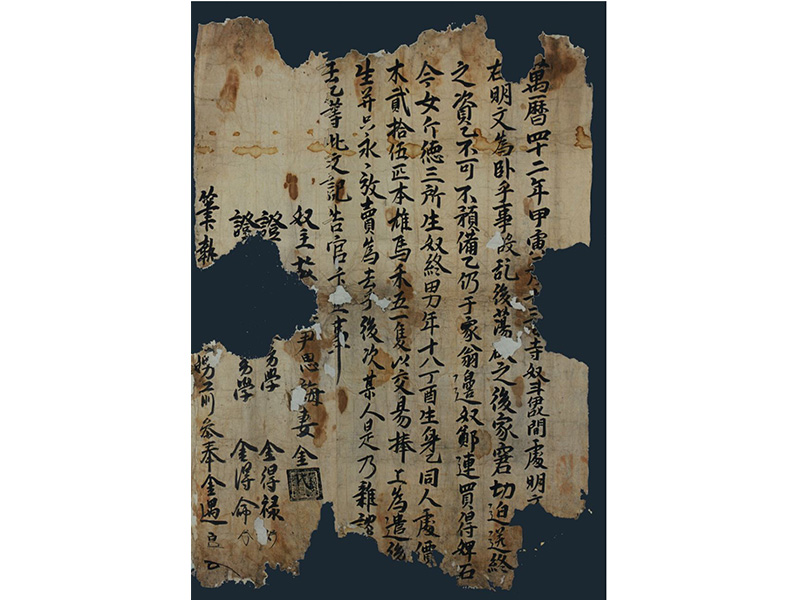 萬曆四十二年甲寅 月十三 寺奴 間處明文
右明文為卧乎事段乱後蕩 之後家窘切迫送終
之資乙不可不預備乙仍于家翁邊奴鄭連買得婢石
今女介德三所生奴終男年十八丁酉生身乙同人處價
木貳拾伍疋本雄馬禾五一隻以交易捧上為遣後
生并以永永放賣為去乎後次某人是乃雜談
去乙等此文記告官卞正事
奴主 尹思 妻金
證 幼學 金得祿
證 幼學 金得命
筆執 前參奉金遇